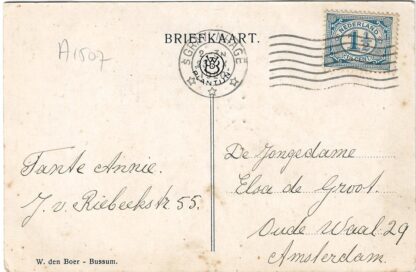 A1507
BRIEFKAART.
'SGRAVENHAGE
NEDERLAND
1½
Tante Annie.
J. v. Riebeekstr 55.
De Jongedame
Elsa de Groot
Oude Waal 29
Amsterdam.
W. den Boer - Bussum.